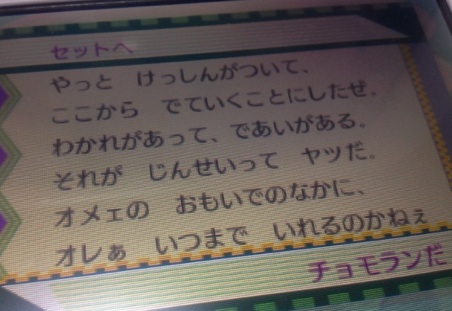 セットへ
やっと　けっしんがついて、
ここから　でていくことにしたぜ.
わかれがあって、であいがある.
それが　じんせいって　ヤツだ.
オメェの　おもいでのなかに、
オレぁ　いつまで　いれるのかねぇ
チョモランだ